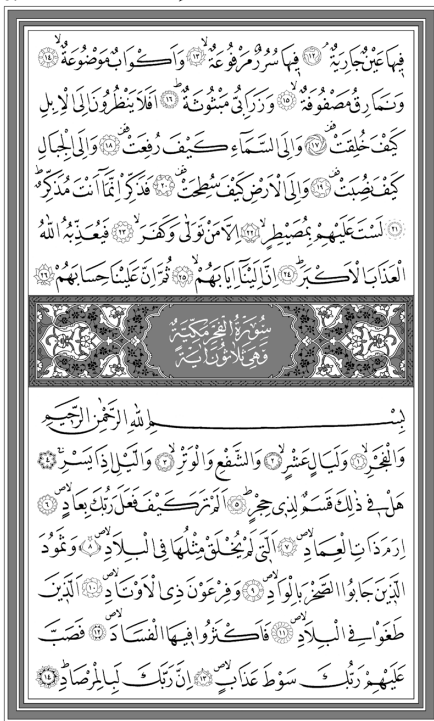 فِيهَا عَيْنٌ جَارِيَةٌ ﴿١٢﴾ فِيهَا سُرُرٌ مَرْفُوعَةٌ ﴿١٣﴾ وَاَكْوَابٌ مَوْضُوعَةٌ ﴿١٤﴾
وَنَمَارِقُ مَصْفُوفَةٌ ﴿١٥﴾ وَزَرَابِيُّ مَبْثُوثَةٌ ﴿١٦﴾ اَفَلَا يَنْظُرُونَ اِلَى الْاِبِلِ
كَيْفَ خُلِقَتْ ﴿١٧﴾ وَاِلَى السَّمَاءِ كَيْفَ رُفِعَتْ ﴿١٨﴾ وَاِلَى الْجِبَالِ
كَيْفَ نُصِبَتْ ﴿١٩﴾ وَاِلَى الْاَرْضِ كَيْفَ سُطِحَتْ ﴿٢٠﴾ فَذَكِّرْ اِنَّمَا اَنْتَ مُذَكِّرٌ
﴿٢١﴾ لَسْتَ عَلَيْهِمْ بِمُصَيْطِرٍ ﴿٢٢﴾ اِلَّا مَنْ تَوَلّٰى وَكَفَرَ ﴿٢٣﴾ فَيُعَذِّبُهُ اللّٰهُ
الْعَذَابَ الْاَكْبَرَ ﴿٢٤﴾ اِنَّ اِلَيْنَا اِيَابَهُمْ ﴿٢٥﴾ ثُمَّ اِنَّ عَلَيْنَا حِسَابَهُمْ ﴿٢٦﴾
سُورَةُ الْفَجْرِ مَكِّيَّةٌ
وَهِيَ ثَلَاثُونَ اٰيَةً
بِسْمِ اللّٰهِ الرَّحْمٰنِ الرَّحِيمِ
وَالْفَجْرِ ﴿١﴾ وَلَيَالٍ عَشْرٍ ﴿٢﴾ وَالشَّفْعِ وَالْوَتْرِ ﴿٣﴾ وَالَّيْلِ اِذَا يَسْرِ ﴿٤﴾
هَلْ فِي ذٰلِكَ قَسَمٌ لِذِي حِجْرٍ ﴿٥﴾ اَلَمْ تَرَ كَيْفَ فَعَلَ رَبُّكَ بِعَادٍ ﴿٦﴾
اِرَمَ ذَاتِ الْعِمَادِ ﴿٧﴾ اَلَّتِي لَمْ يُخْلَقْ مِثْلُهَا فِي الْبِلَادِ ﴿٨﴾ وَثَمُودَ
الَّذِينَ جَابُوا الصَّخْرَ بِالْوَادِ ﴿٩﴾ وَفِرْعَوْنَ ذِي الْاَوْتَادِ ﴿١٠﴾ اَلَّذِينَ
طَغَوْا فِي الْبِلَادِ ﴿١١﴾ فَاَكْثَرُوا فِيهَا الْفَسَادَ ﴿١٢﴾ فَصَبَّ
عَلَيْهِمْ رَبُّكَ سَوْطَ عَذَابٍ ﴿١٣﴾ اِنَّ رَبَّكَ لَبِالْمِرْصَادِ ﴿١٤﴾